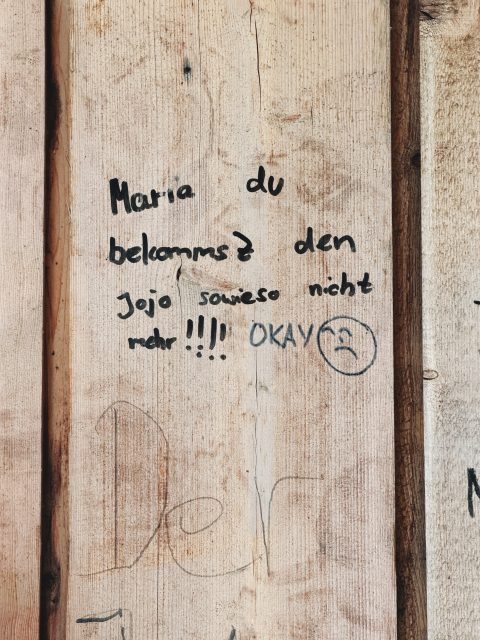 Maria du
bekommst den
Jojo sowieso nicht
mehr !!!! OKAY
Der